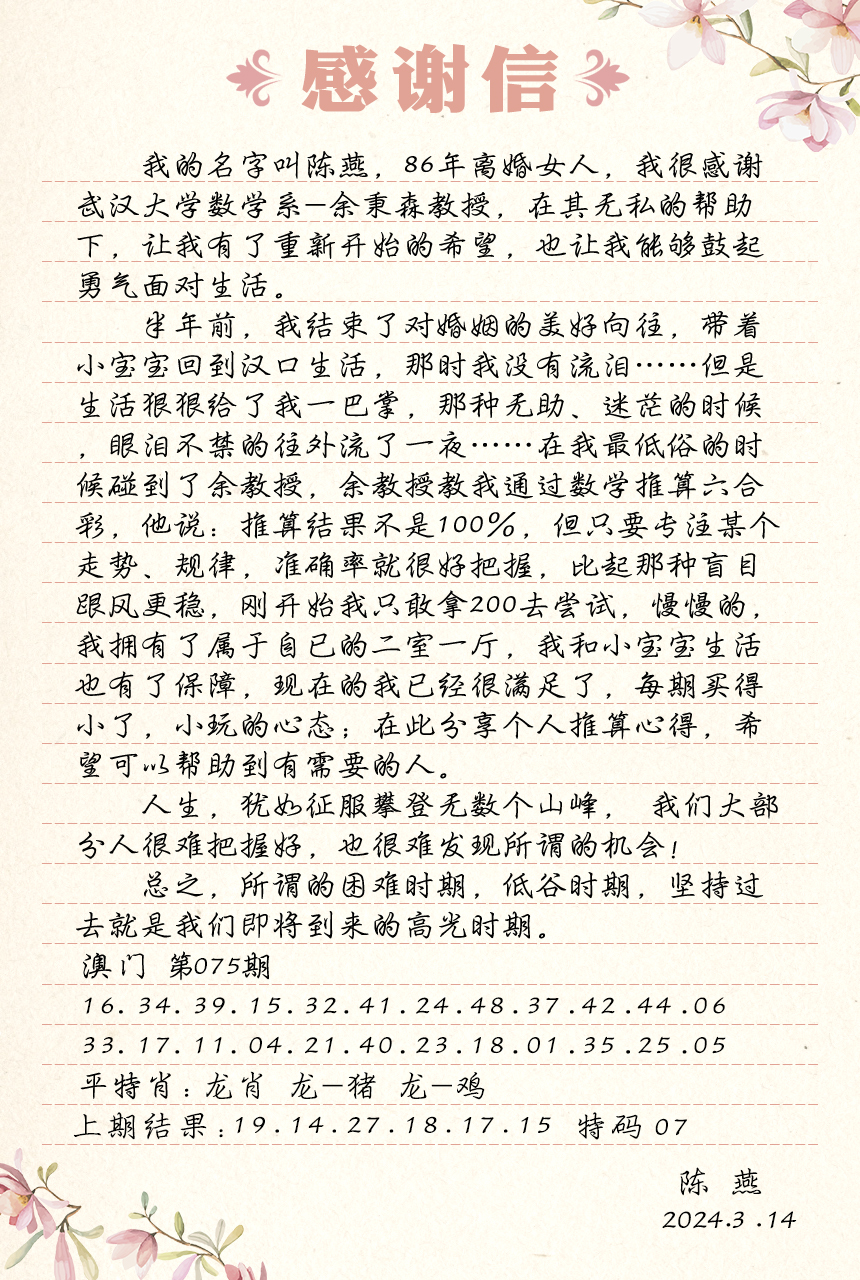 感谢信
我的名字叫陈燕，86年离婚女人，我很感谢
武汉大学数学系—余秉森教授，在其无私的帮助
下，让我有了重新开始的希望，也让我能够鼓起
勇气面对生活。
半年前，我结束了对婚姻的美好向往，带着
小宝宝回到汉口生活，那时我没有流泪……但是
生活狠狠给了我一巴掌，那种无助、迷茫的时候
，眼泪不禁的往外流了一夜……在我最低俗的时
候碰到了余教授，余教授教我通过数学推算六合
彩，他说：推算结果不是100%，但只要专注某个
走势、规律，准确率就很好把握，比起那种盲目
跟风更稳，刚开始我只敢拿200去尝试，慢慢的，
我拥有了属于自已的二室一厅，我和小宝宝生活
也有了保障，现在的我已经很满足了，每期买得
小了，小玩的心态；在此分享个人推算心得，希
望可以帮助到有需要的人。
人生，犹如征服攀登无数个山峰， 我们大部
分人很难把握好，也很难发现所谓的机会！
总之，所谓的困难时期，低谷时期，坚持过
去就是我们即将到来的高光时期。
澳门 第075期
16.34.39.15.32.41.24.48.37.42.44.06
33.17.11.04.21.40.23.18.01.35.25.05
平特肖：龙肖 龙—猪 龙—鸡
上期结果：19.14.27.18.17.15 特码 07
陈 燕
2024.3.14